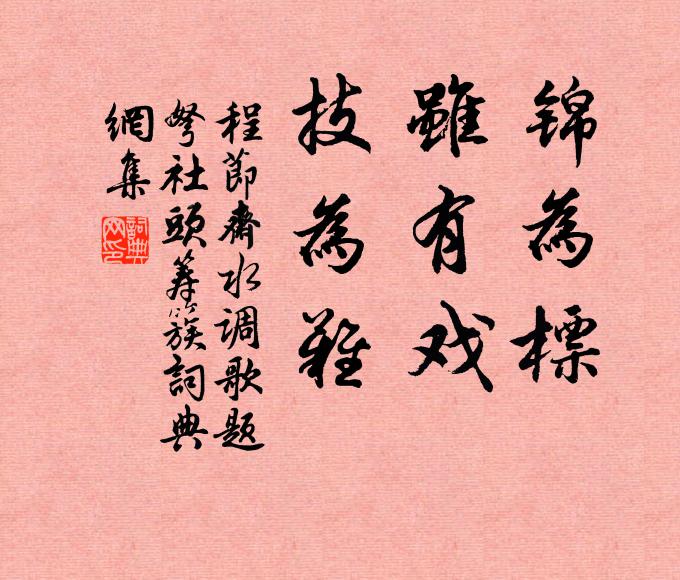 锦為標
雖有戏
技為難
程節齋水调歌题
弩社頭筹簇詞典
網集
詞典
网印